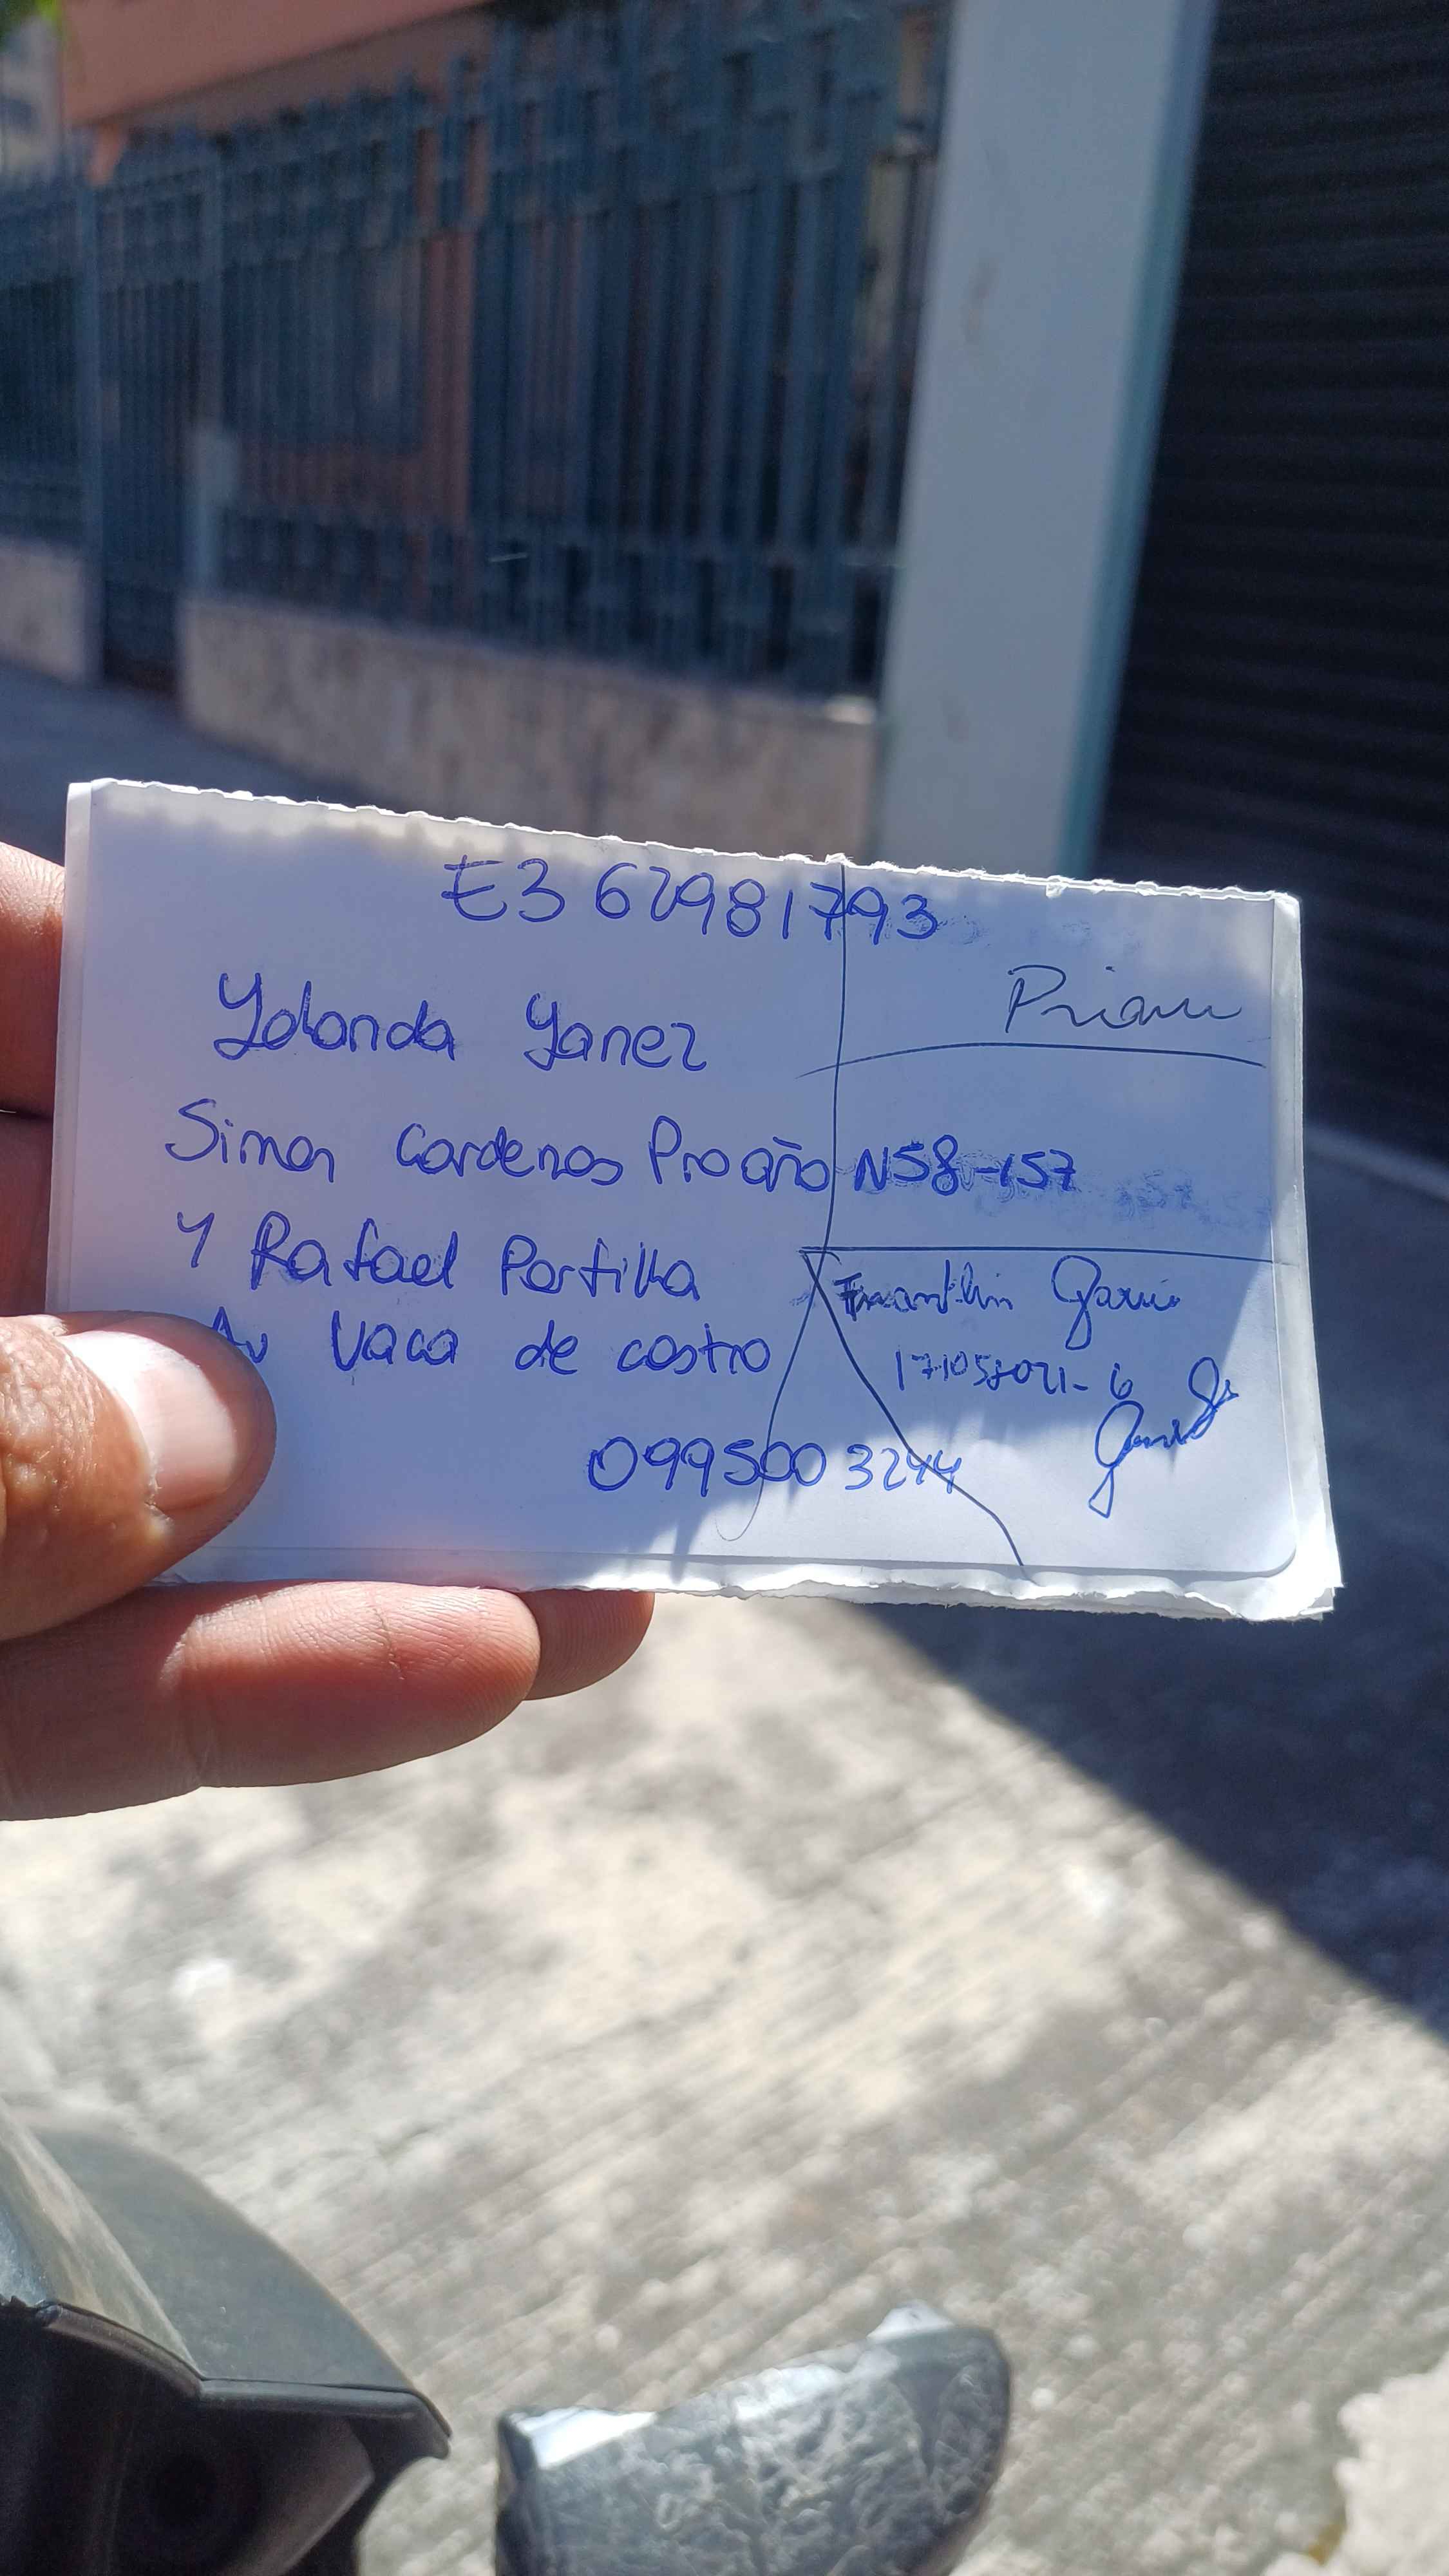 E3 62981793
Yolanda Yanez
Simon Cardenas Proaño N58-157
Y Rafael Portilla
Av Vaca de castro
0995003244
Franklin García